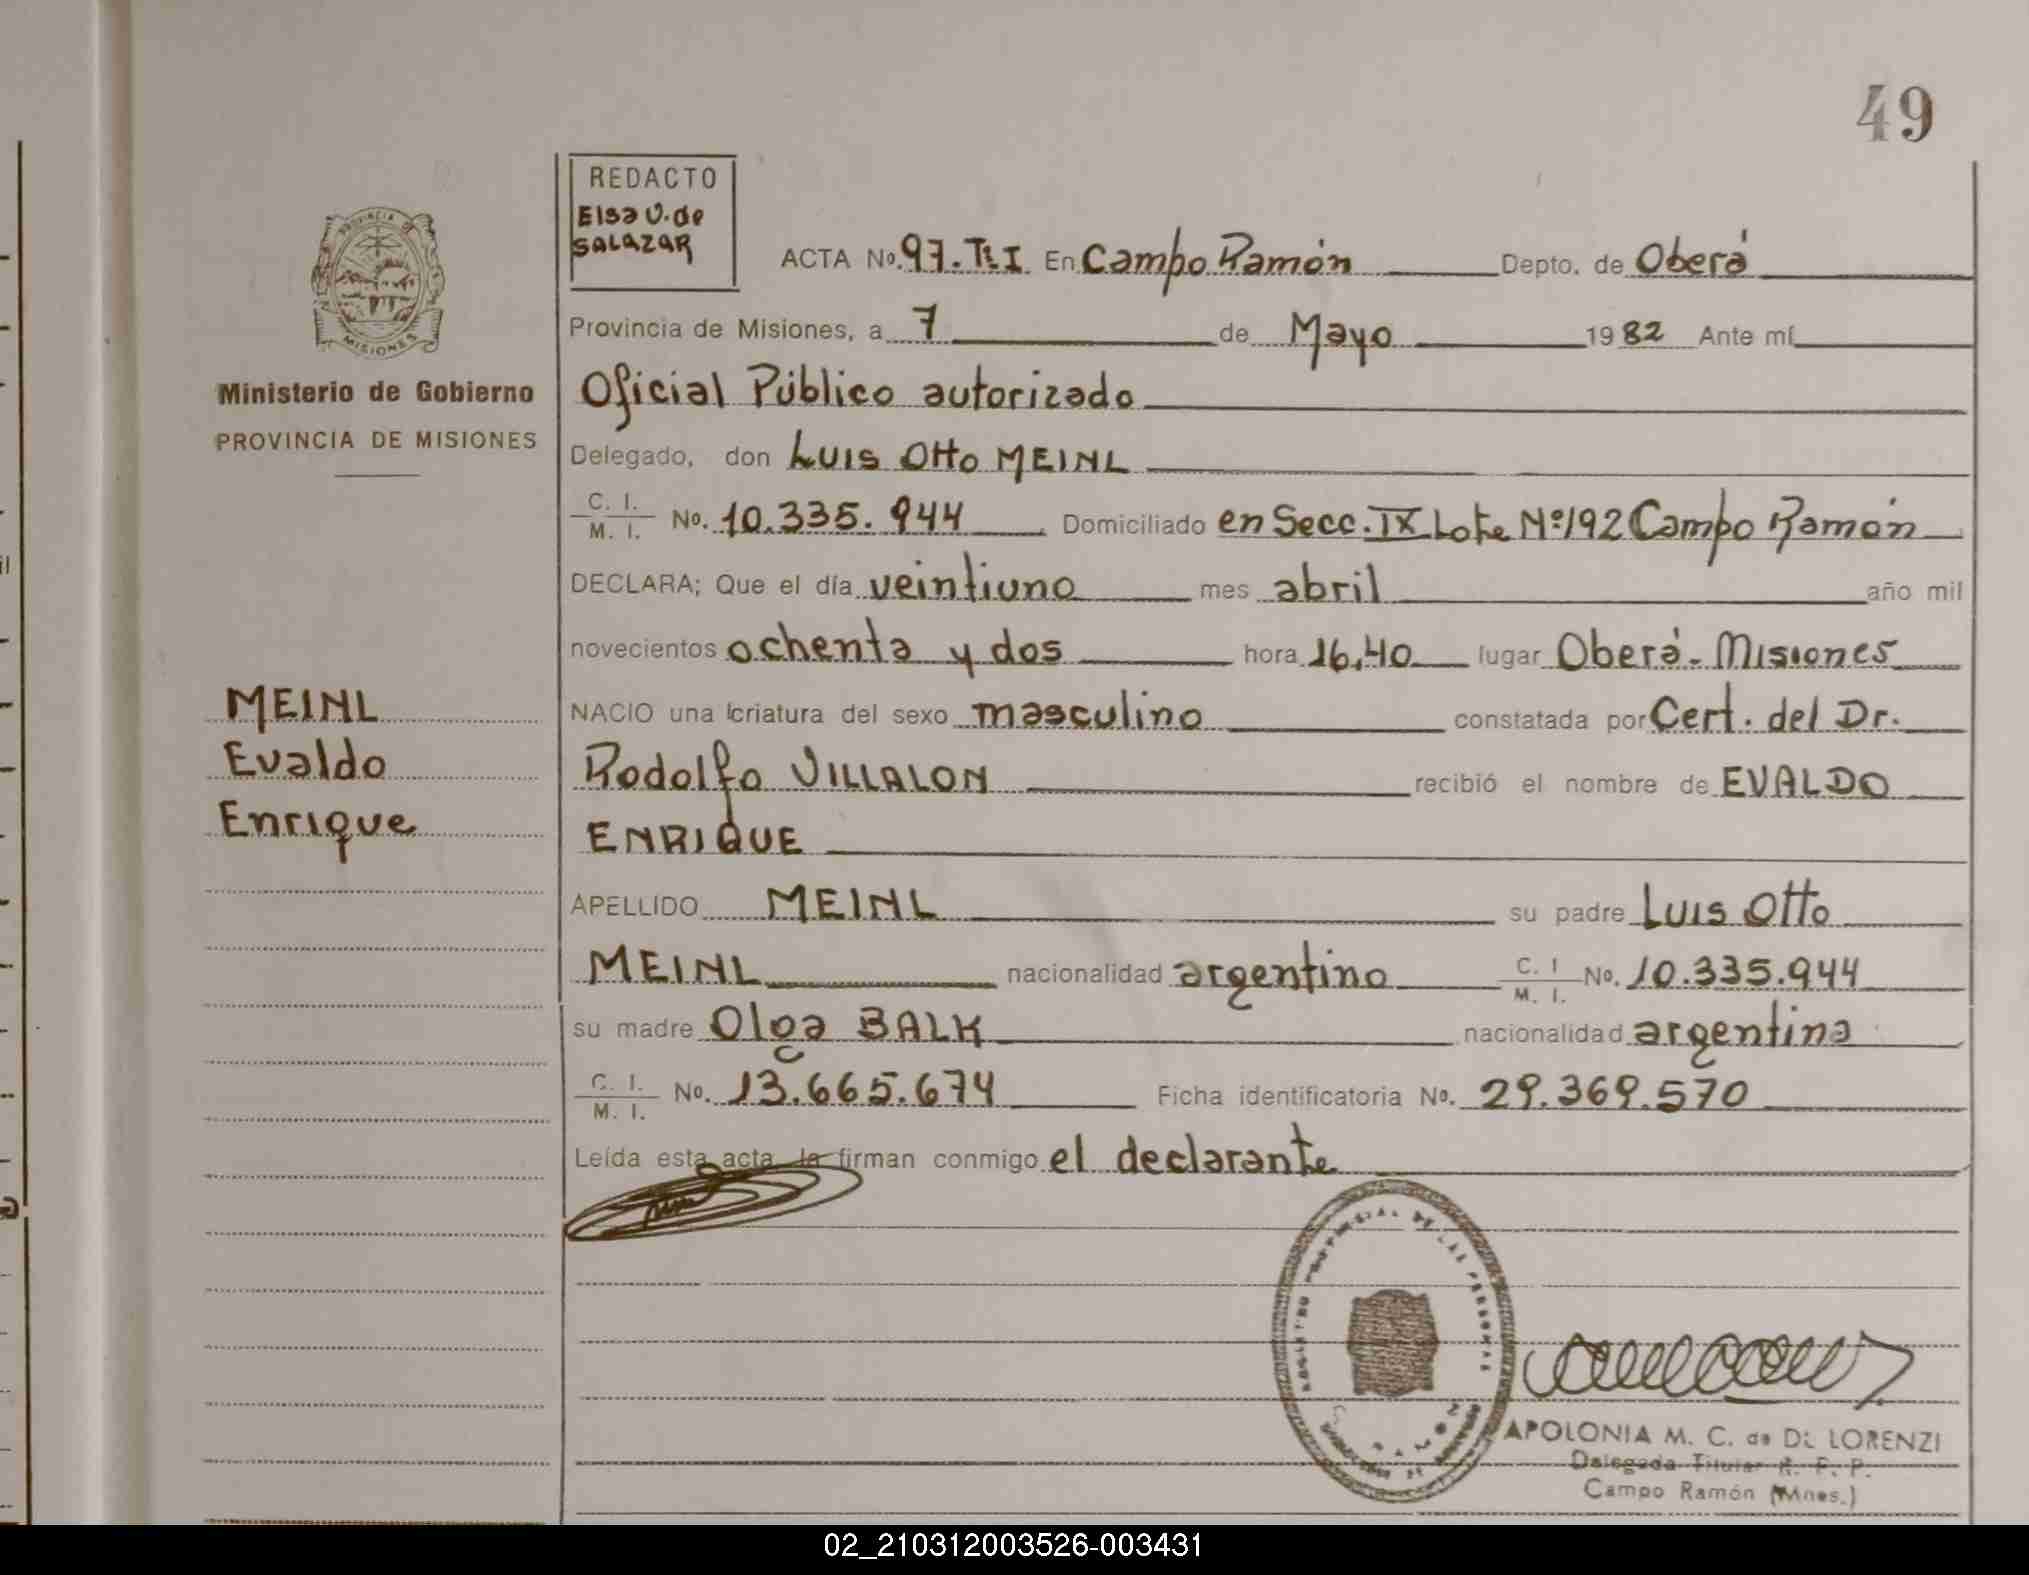 49
REDACTO
Elsa V. de
SALAZAR
PROVINCIA DE
MISIONES
Ministerio de Gobierno
PROVINCIA DE MISIONES
ACTA No. 97. T: I En Campo Ramón Depto. de Oberá
Provincia de Misiones, a 7 de Mayo 1982 Ante mí
Oficial Público autorizado
Delegado, don Luis Otto MEINL
C. I.
M. I. No. 10.335.944 Domiciliado en Secc. IX Lote Nº 192 Campo Ramón
DECLARA; Que el día veintiuno mes abril año mil
novecientos ochenta y dos hora 16,40 lugar Oberá - Misiones
NACIO una criatura del sexo masculino constatada por Cert. del Dr.
Rodolfo VILLALON recibió el nombre de EVALDO
ENRIQUE
MEINL
Evaldo
Enrique
APELLIDO MEINL su padre Luis Otto
MEINL nacionalidad argentino C. I. M. I. No. 10.335.944
su madre Olga BALK nacionalidad argentina
C. I.
M. I. No. 13.665.674 Ficha identificatoria No. 29.369.570
Leída esta acta la firman conmigo el declarante
REGISTRO PROVINCIAL DE LAS PERSONAS
APOLONIA M. C. de DE LORENZI
Delegada Titular R. P. P.
Campo Ramón (Mnes.)
02_210312003526-003431